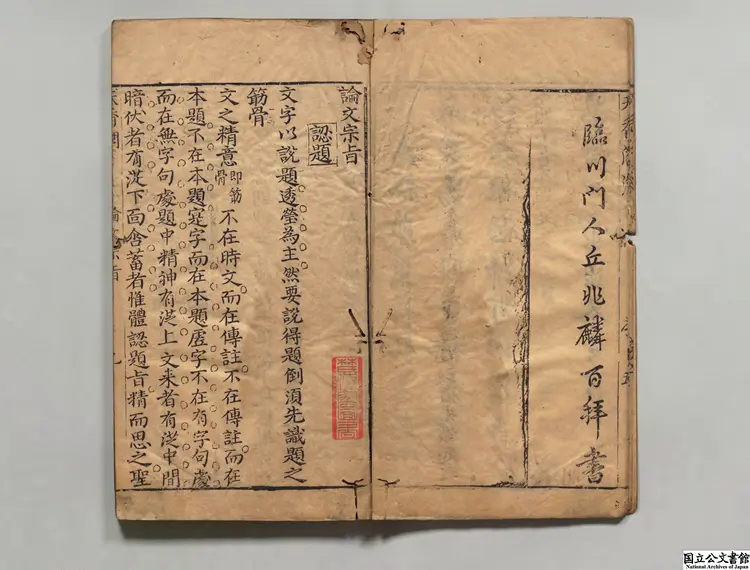 臨川門人丘兆麟百拜書
論文宗旨
認題
文字以說題透瑩為主然要說得題倒須先識題之
筋骨
文之精意即筋骨不在時文而在傳註不在傳註而在
本題不在本題寔字而在本題虛字不在有字句處
而在無字句處題中精神有從上文来者有從中間
暗伏者有從下面含蓄者惟體認題旨精而思之聖
国立公文書館
National Archives of Japan